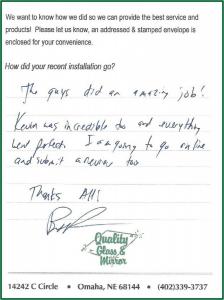 We want to know how we did so we can provide the best service and
products! Please let us know, an addressed & stamped envelope is
enclosed for your convenience.
How did your recent installation go?
The guys did an amazing job!
Kevin was incredible too and everything
went perfect. I am going to go online
and submit a review too
Thanks All!
Quality
Glass &
Mirror
14242 C Circle • Omaha, NE 68144 • (402)339-3737